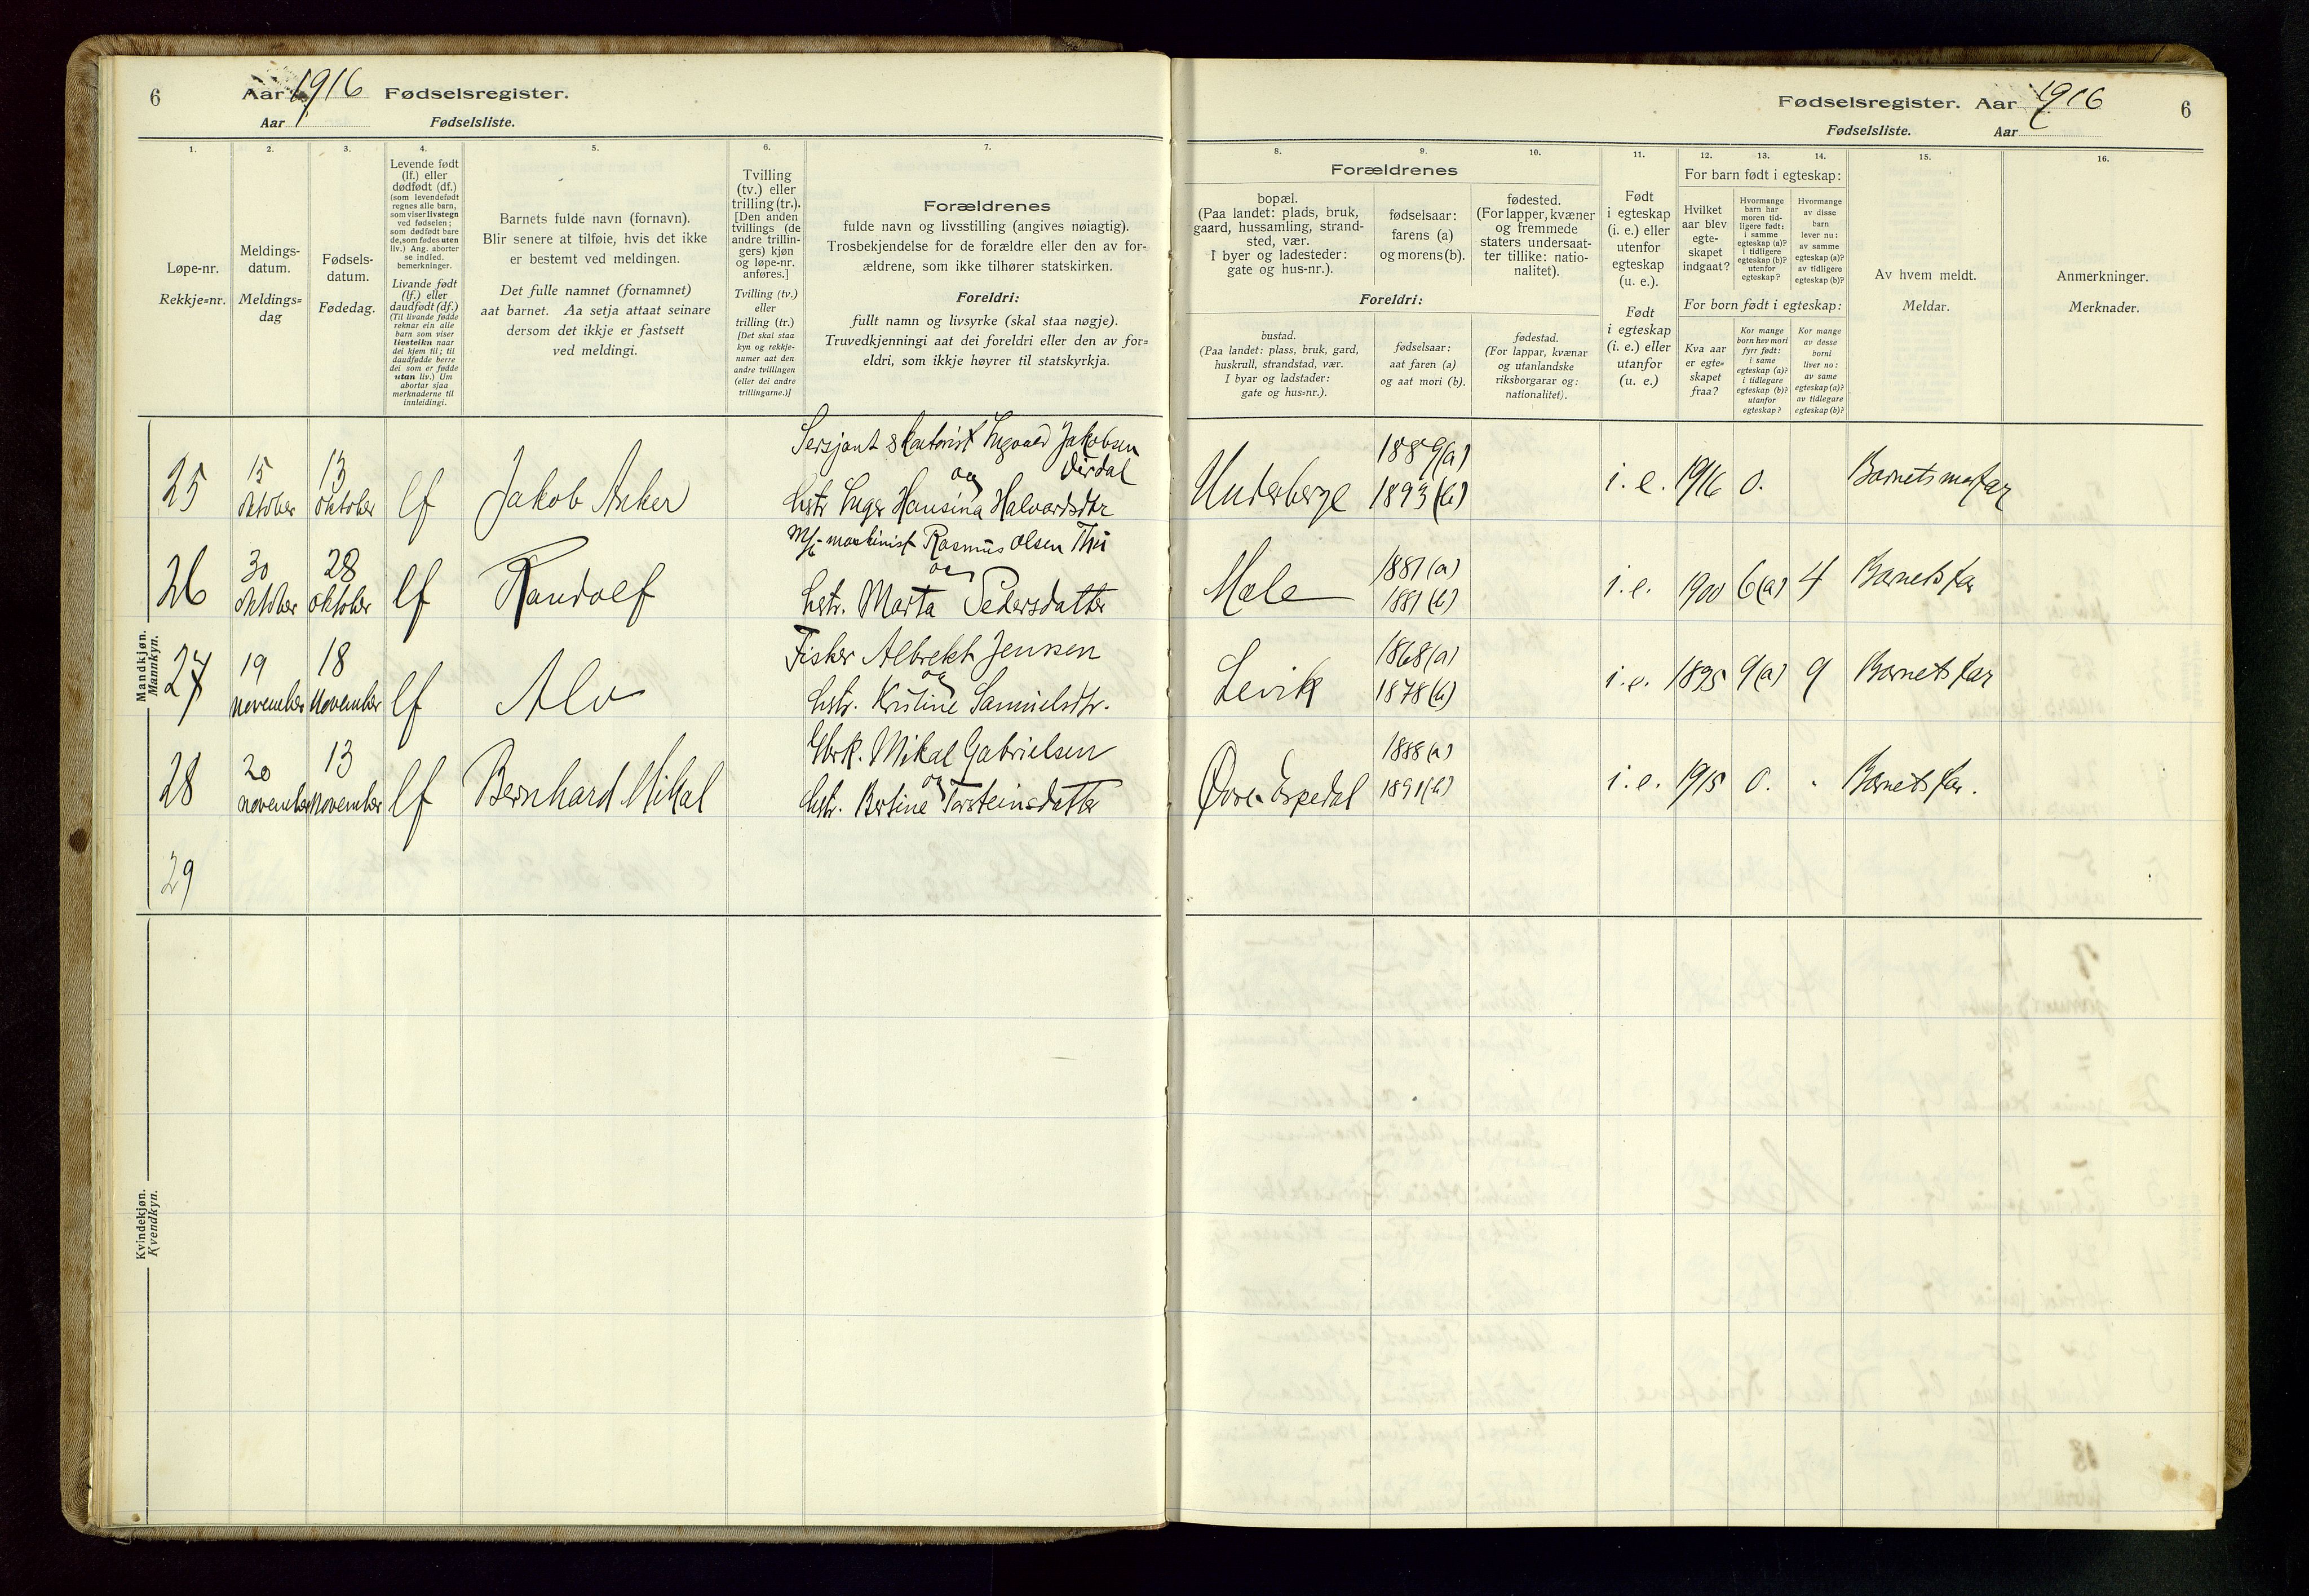 6
Aar 1916 Fødselsregister.
Aar Fødselsliste.
1.
2.
3.
4.
5.
6.
7.
Løpe-nr.
Rekkje=nr.
Meldings-
datum.
Meldings=
dag
Fødsels-
datum.
Fødedag.
Levende født
(lf.) eller
dødfødt (df.)
(som levendefødt
regnes alle barn,
som viser livstegn
ved fødselen;
som dødfødt bare
de, som fødes uten
liv.) Ang. aborter
se indled.
bemerkninger.
Livande født
(lf.) eller
daudfødt (df.)
(Til livande fødde
reknar ein alle
barn som viser
livsteikn naar
dei kjem til; til
daudfødde berre
dei som er fødde
utan liv.) Um
abortar sjaa
merknaderne til
innleidingi.
Barnets fulde navn (fornavn).
Blir senere at tilføie, hvis det ikke
er bestemt ved meldingen.
Det fulle namnet (fornamnet)
aat barnet. Aa setja attaat seinare
dersom det ikkje er fastsett
ved meldingi.
Tvilling
(tv.) eller
trilling (tr.).
[Den anden
tvillings (de
andre trillin-
gers) kjøn
og løpe-nr.
anføres.]
Tvilling (tv.)
eller
trilling (tr.)
[Det skal staa
kyn og rekkje-
numer aat den
andre tvillingen
(eller dei andre
trillingarne.)]
Forældrenes
fulde navn og livsstilling (angives nøiagtig).
Trosbekjendelse for de forældre eller den av for-
ældrene, som ikke tilhører statskirken.
Foreldri:
fullt namn og livsyrke (skal staa nøgje).
Truvedkjenningi aat dei foreldri eller den av for=
eldri, som ikkje høyrer til statskyrkja.
Mandkjøn.
Mannkyn.
25
15
oktober
13
oktober
lf
Jakob Anker
Sersjant Ingvald Jakobsen
Dirdal
og
hstr Inger Hansina Halvardsdtr
26
30
oktober
28
oktober
lf
Randolf
maskinist Rasmus Olsen Thu
og
hstr. Marta Pedersdatter
27
19
november
18
November
lf
Alv
Fisker Albrekt Jensen
og
hstr. Kristine Samuelsdtr.
28
20
november
13
November
lf
Bernhard Mikal
Gbrk. Mikal Gabrielsen
og
hstr. Bertine Torsteinsdatter
29
Kvindekjøn.
Kvendkyn.
Fødselsregister. Aar 1916
6
Fødselsliste. Aar
8.
9.
10.
11.
12.
13.
14.
15.
16.
Forældrenes
bopæl.
(Paa landet: plads, bruk,
gaard, hussamling, strand-
sted, vær.
I byer og ladesteder:
gate og hus-nr.).
fødselsaar:
farens (a)
og morens (b).
fødested.
(For lapper, kvæner
og fremmede
staters undersaat-
ter tillike: natio-
nalitet).
Foreldri:
bustad.
(Paa landet: plass, bruk, gard,
huskrull, strandstad, vær.
I byar og ladstader:
gate og hus=nr.).
fødselsaar:
aat faren (a)
og aat mori (b).
fødestad.
(For lappar, kvænar
og utanlandske
riksborgarar og:
nationalitet).
Født
i egteskap
(i. e.) eller
utenfor
egteskap
(u. e.).
Født
i egteskap
(i. e.) eller
utanfor
(u. e.)
For barn født i egteskap:
Hvilket
aar blev
egte-
skapet
indgaat?
Hvormange
barn har
moren tid-
ligere født:
i samme
egteskap (a)?
i tidligere
egteskap (b)?
utenfor
egteskap?
Hvormange
av disse
barn
lever nu:
av samme
egteskap (a)?
av tidligere
egteskap (b)?
For born født i egteskap:
Kva aar
er egte=
skapet
fraa?
Kor mange
born hev mori
fyrr født:
i same
egteskap (a)?
i tidlegare
egteskap (b)?
utanfor
egteskap?
Kor mange
av desse
borni
liver no:
av same
egteskap (a)?
av tidlegare
egteskap (b)?
Av hvem meldt.
Meldar.
Anmerkninger.
Merknader.
Underberge
1889(a)
1893(b)
i. e. 1916 0. Barnets morfar
Mæle
1881(a)
1881(b)
i. e. 1900 6(a) 4 Barnets far
Levik
1868(a)
1878(b)
i. e. 1895 9(a) 9 Barnets far
Øvre Espedal
1888(a)
1891(b)
i. e. 1915 0. Barnets far.